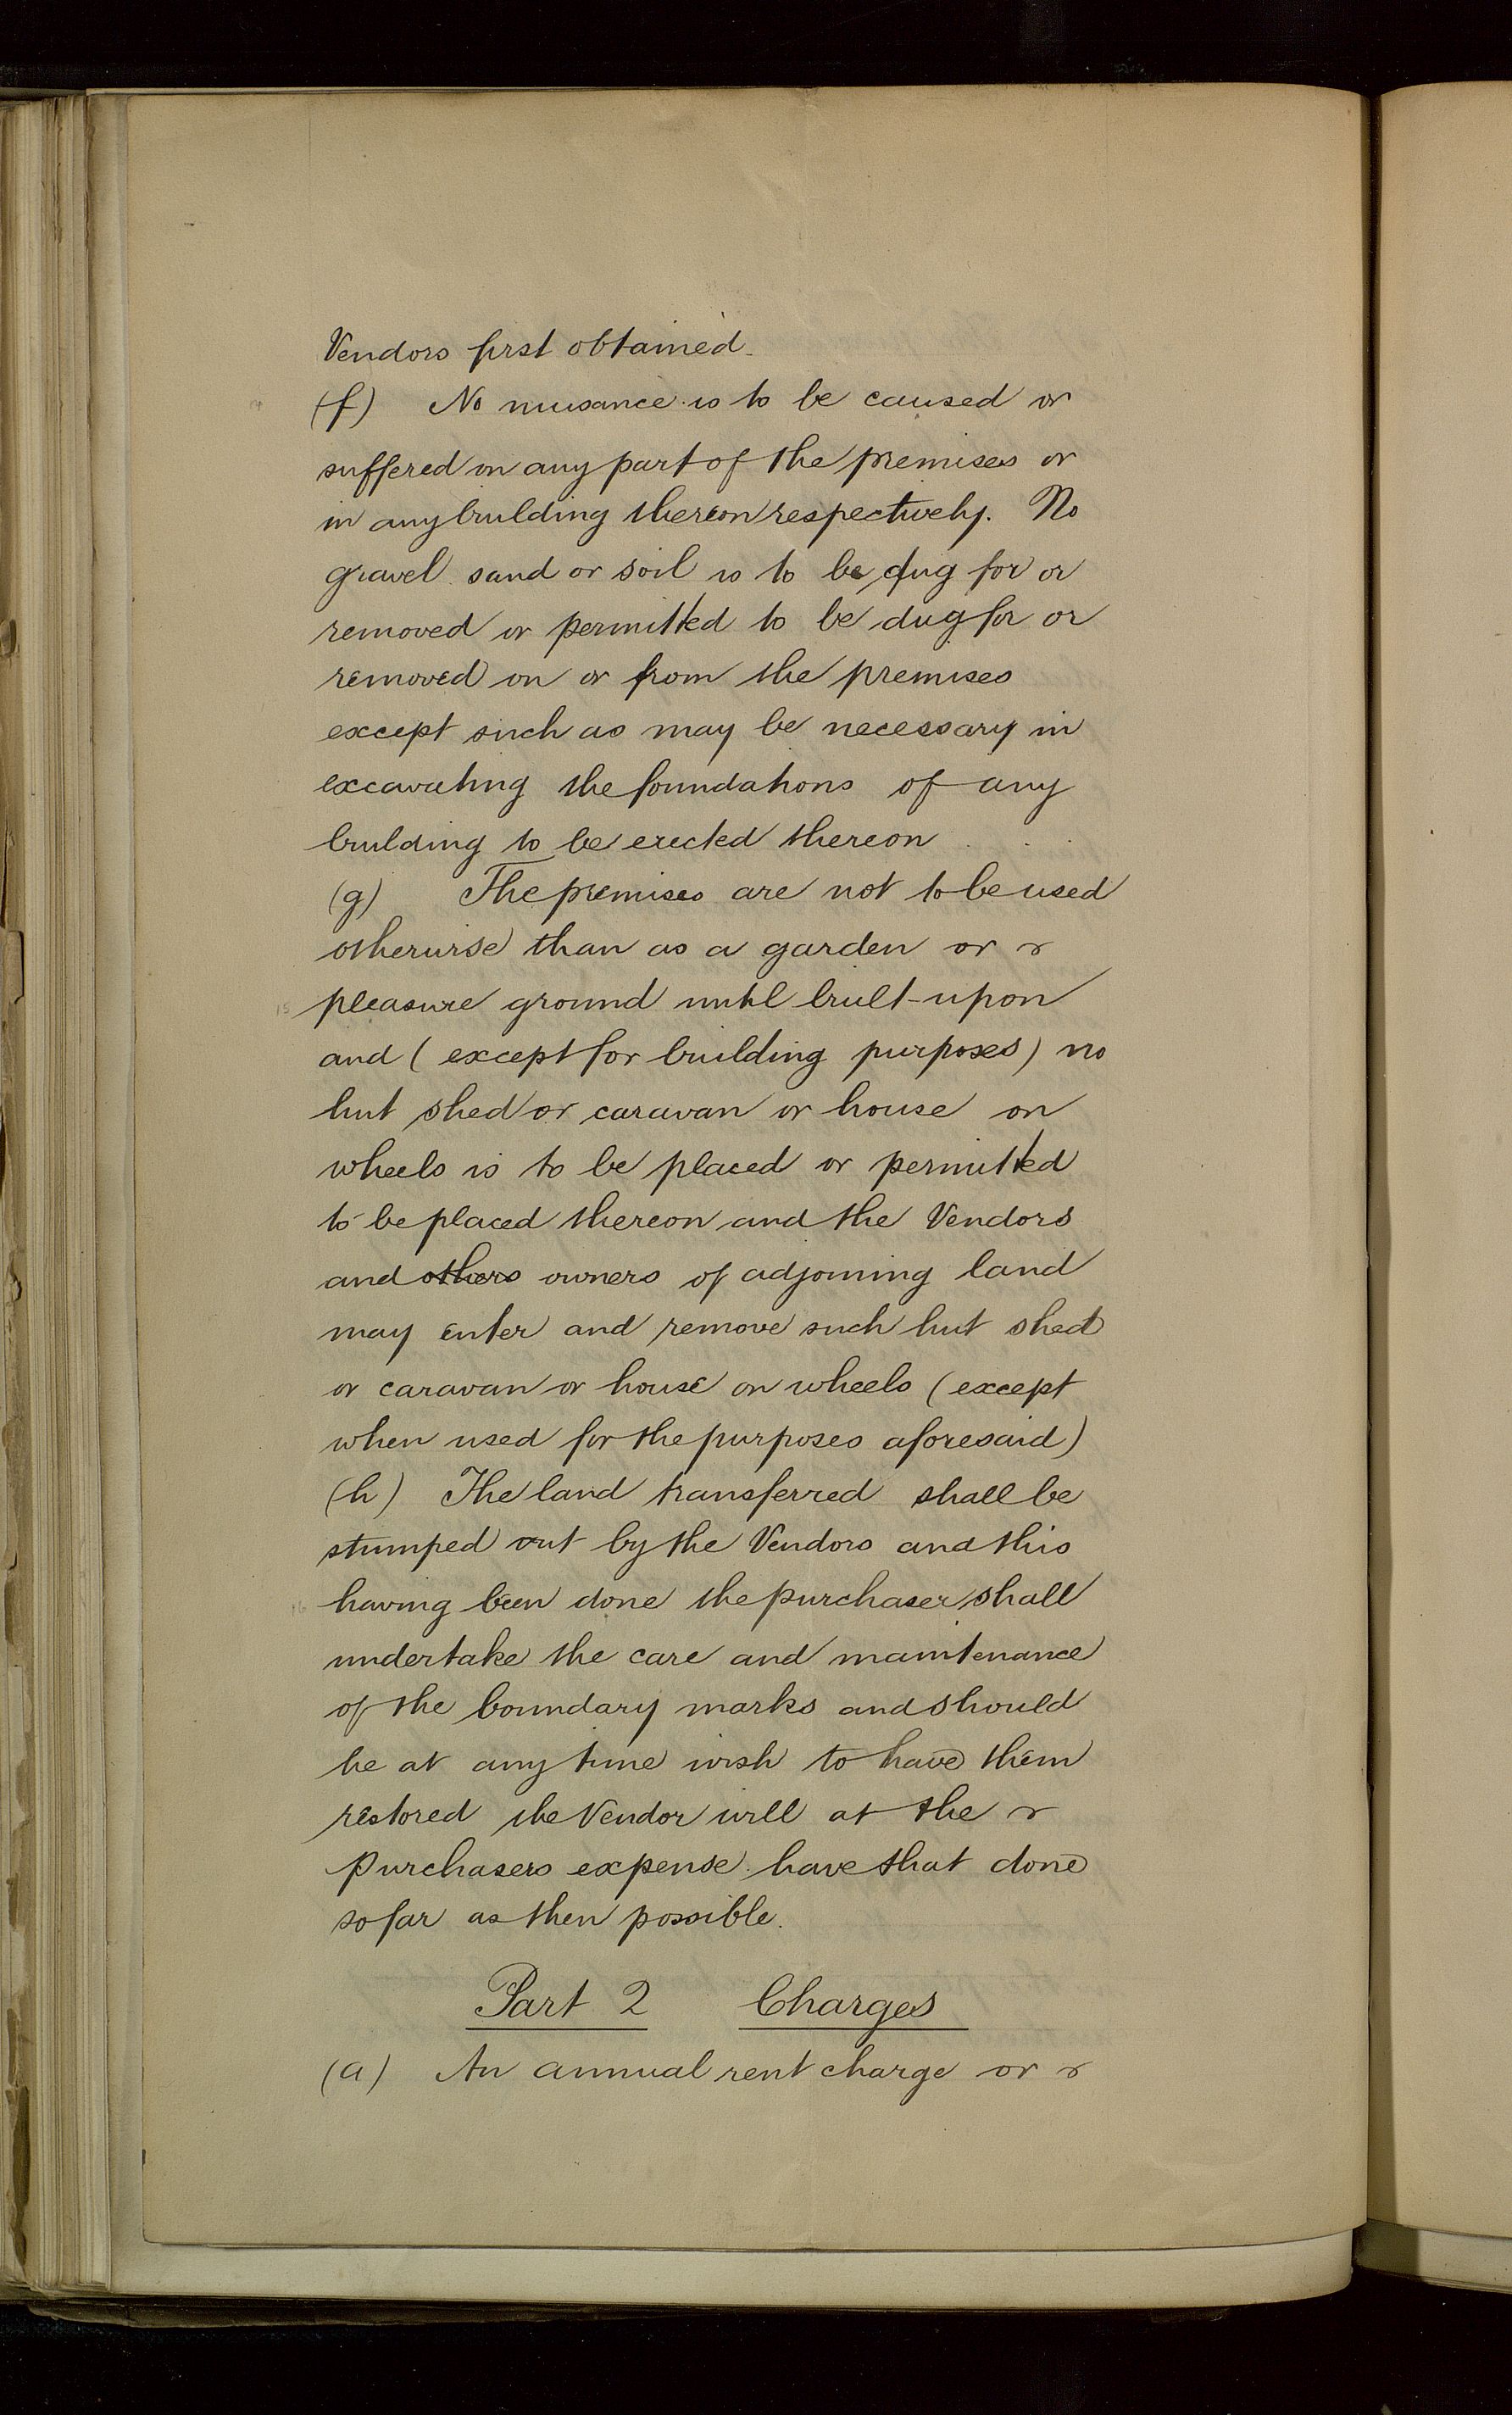 Vendors first obtained.
(f) No nuisance is to be caused or
suffered on any part of the premises or
in any building thereon respectively. No
gravel sand or soil is to be dug for or
removed or permitted to be dug for or
removed on or from the premises
except such as may be necessary in
excavating the foundations of any
building to be erected thereon
(g) The premises are not to be used
otherwise than as a garden or
pleasure ground until built-upon
and (except for building purposes) no
hut shed or caravan or house on
wheels is to be placed or permitted
to be placed thereon and the Vendors
and others owners of adjoining land
may enter and remove such hut shed
or caravan or house on wheels (except
when used for the purposes aforesaid)
(h) The land transferred shall be
stumped out by the Vendors and this
having been done the purchaser shall
undertake the care and maintenance
of the boundary marks and should
he at any time wish to have them
restored the Vendor will at the
Purchasers expense have that done
so far as then possible.
Part 2 Charges
(a) An annual rent charge or